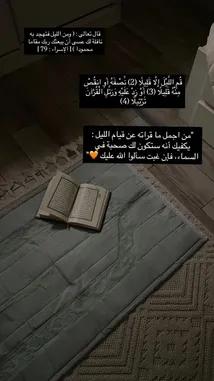 قال تعالى : ﴿ ومن الليل فتهجد به
نافلة لك عسى أن يبعثك ربك مقاما
محمودا ﴾ [ الإسراء : 79 ]
قُمِ اللَّيْلَ إِلَّا قَلِيلًا (2) نِّصْفَهُ أَوِ انقُصْ
مِنْهُ قَلِيلًا (3) أَوْ زِدْ عَلَيْهِ وَرَتِّلِ الْقُرْآنَ
تَرْتِيلًا (4)
"من اجمل ما قرأته عن قيام الليل :
يكفيك أنه ستكون لك صحبة في
السماء، فإن غبت سألوا الله عليك 🧡"